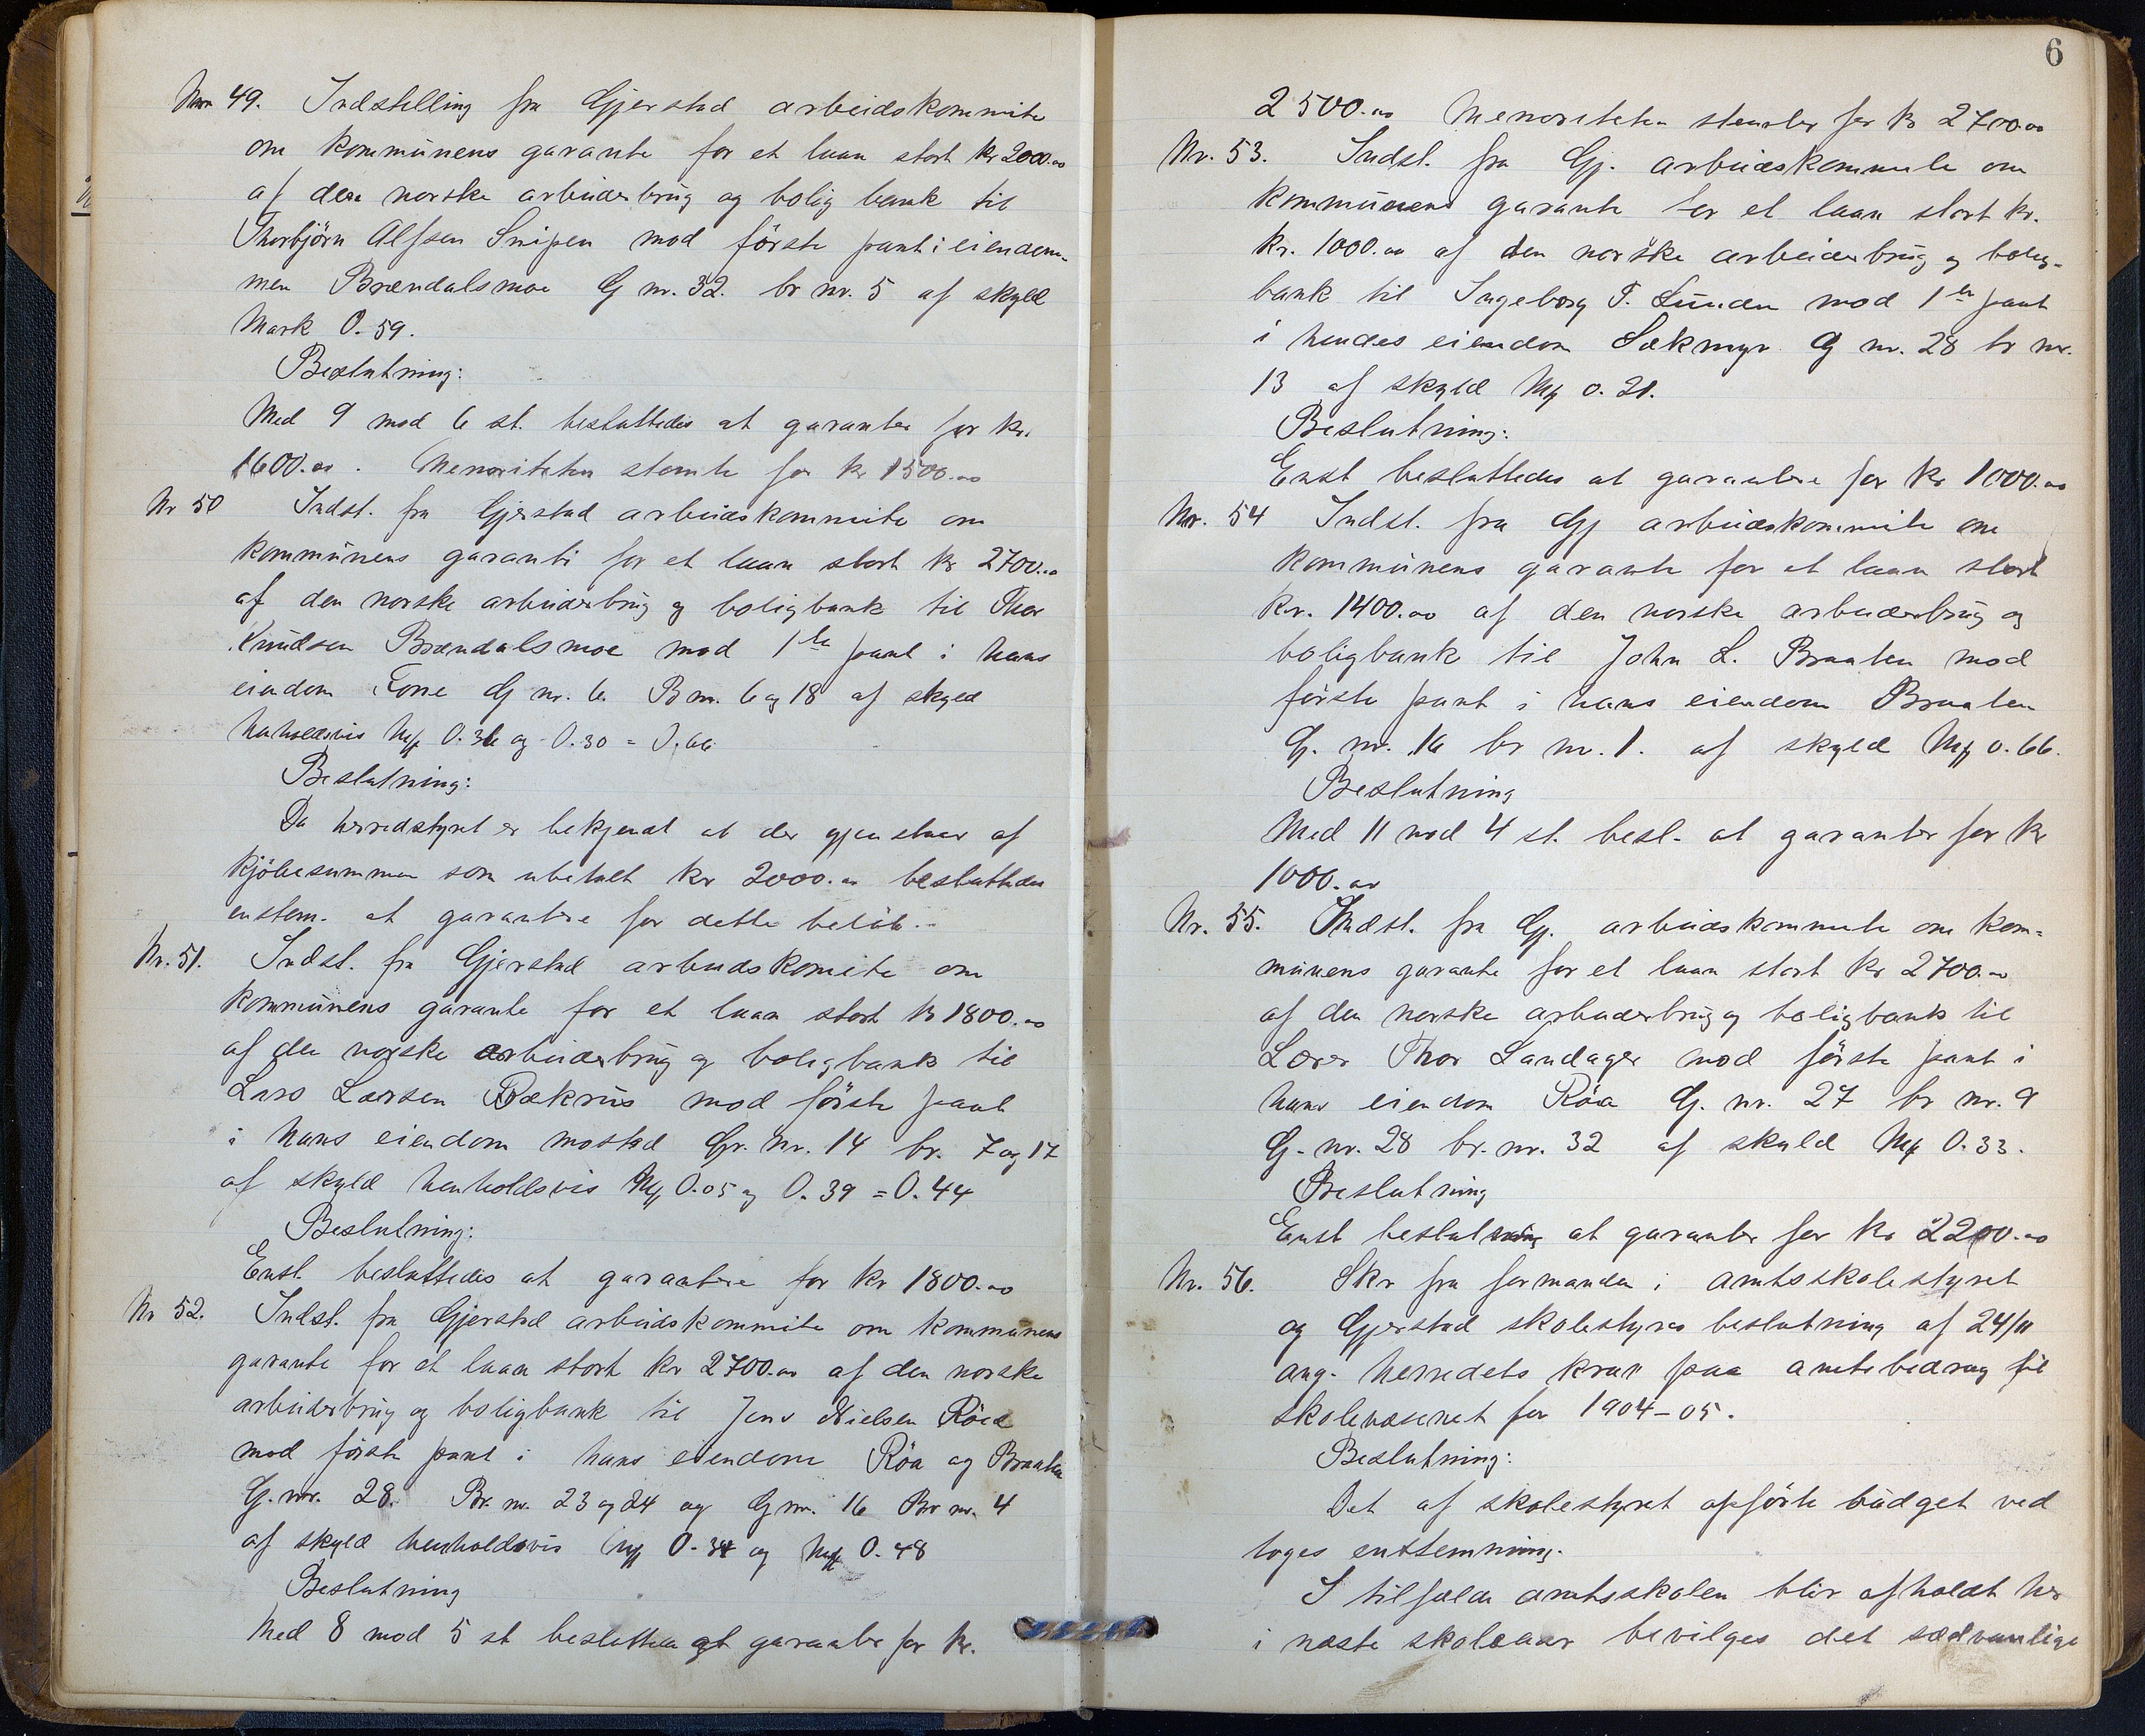 Nr 49. Indstilling fra Gjerstad arbeidskommite
om kommunens garante for et laan stort kr 2000.00
af den norske arbeiderbrug og bolig bank til
Thorbjörn Alfsen Snipen mod förste pant i eiendom-
men Brændalsmoe G nr. 32. br nr. 5 af skyld
Mark 0.59.
Beslutning:
Med 9 mod 6 st. besluttedes at garantere for kr.
1600.00. Menoriteten stemte for kr 1500.00
Nr 50 Indst. fra Gjerstad arbeidskommite om
kommunens garanti for et laan stort kr 2700.00
af den norske arbeiderbrug og boligbank til Thor
Knudsen Brændalsmoe mod 1ste pant i hans
eiendom Eone G nr. 6. B nr. 6 og 18 af skyld
henholdsvis Mk 0.36 og 0.30 = 0.66
Beslutning:
Da herredstyret er bekjendt at der gjenstaar af
kjöbesummen som ubetalt kr 2000.00 besluttedes
enstem. at garantere for dette belöb.-
Nr. 51. Indst. fra Gjerstad arbeidskomite om
kommunens garante for et laan stort kr 1800.00
af den norske arbeiderbrug og boligbank til
Lars Larsen Bækrus mod förste pant
i hans eiendom mostad Gr. nr. 14 br. 7 og 17
af skyld henholdsvis Mk 0.05 og 0.39 = 0.44
Beslutning:
Enst. besluttedes at garantere for kr 1800.00
Nr 52. Indst. fra Gjerstad arbeidskommite om kommunens
garante for et laan stort kr 2700.00 af den norske
arbeiderbrug og boligbank til Jens Nielsen Röed
mod förste pant i hans eiendom Röa og Braaten
G. nr. 28. Br. nr. 23 og 24 og G nr. 16 Br nr. 4
af skyld henholdsvis Mk 0.34 og Mk 0.48
Beslutning
Med 8 mod 5 st besluttedes at garantere for kr.
6
2500.00 Menoriteten stemte for kr 2700.00
Nr. 53. Indst. fra Gj. arbeidskommite om
kommunens garante for et laan stort kr.
kr. 1000.00 af den norske arbeiderbrug og bolig-
bank til Ingeborg T. Lunden mod 1ste pant
i hendes eiendom Sækmyr G nr. 28 br nr.
13 af skyld Mk 0.21.
Beslutning:
Enst besluttedes at garantere for kr 1000.00
Nr. 54 Indst. fra Gj arbeidskommite om
kommunens garante for et laan stort
kr. 1400.00 af den norske arbeiderbrug og
boligbank til John L. Braaten mod
förste pant i hans eiendom Braaten
G. nr. 16 br nr. 1. af skyld Mk 0.66.
Beslutning
Med 11 mod 4 st. besl. at garanter for kr
1000.00
Nr. 55. Indst. fra Gj. arbeidskommite om kom-
munens garante for et laan stort kr 2700.00
af den norske arbeiderbrug og boligbank til
Lærer Thor Landager mod förste pant i
hans eiendom Röa G. nr. 27 br nr. 9
G. nr. 28 br. nr. 32 af skyld Mk 0.33.
Beslutning
Enst beslutning at garanter for kr 2200.00
Nr. 56. Skr fra formanden i amtsskolestyret
og Gjerstad skolestyres beslutning af 24/11
ang. herredets krav paa amtsbedrag til
skolevæsenet for 1904-05.
Beslutning:
Det af skolestyret opförte budget ved
toges enstemning.
I tilfælde amtsskolen blir afholdt her
i næste skoleaar bevilges det sædvanlige